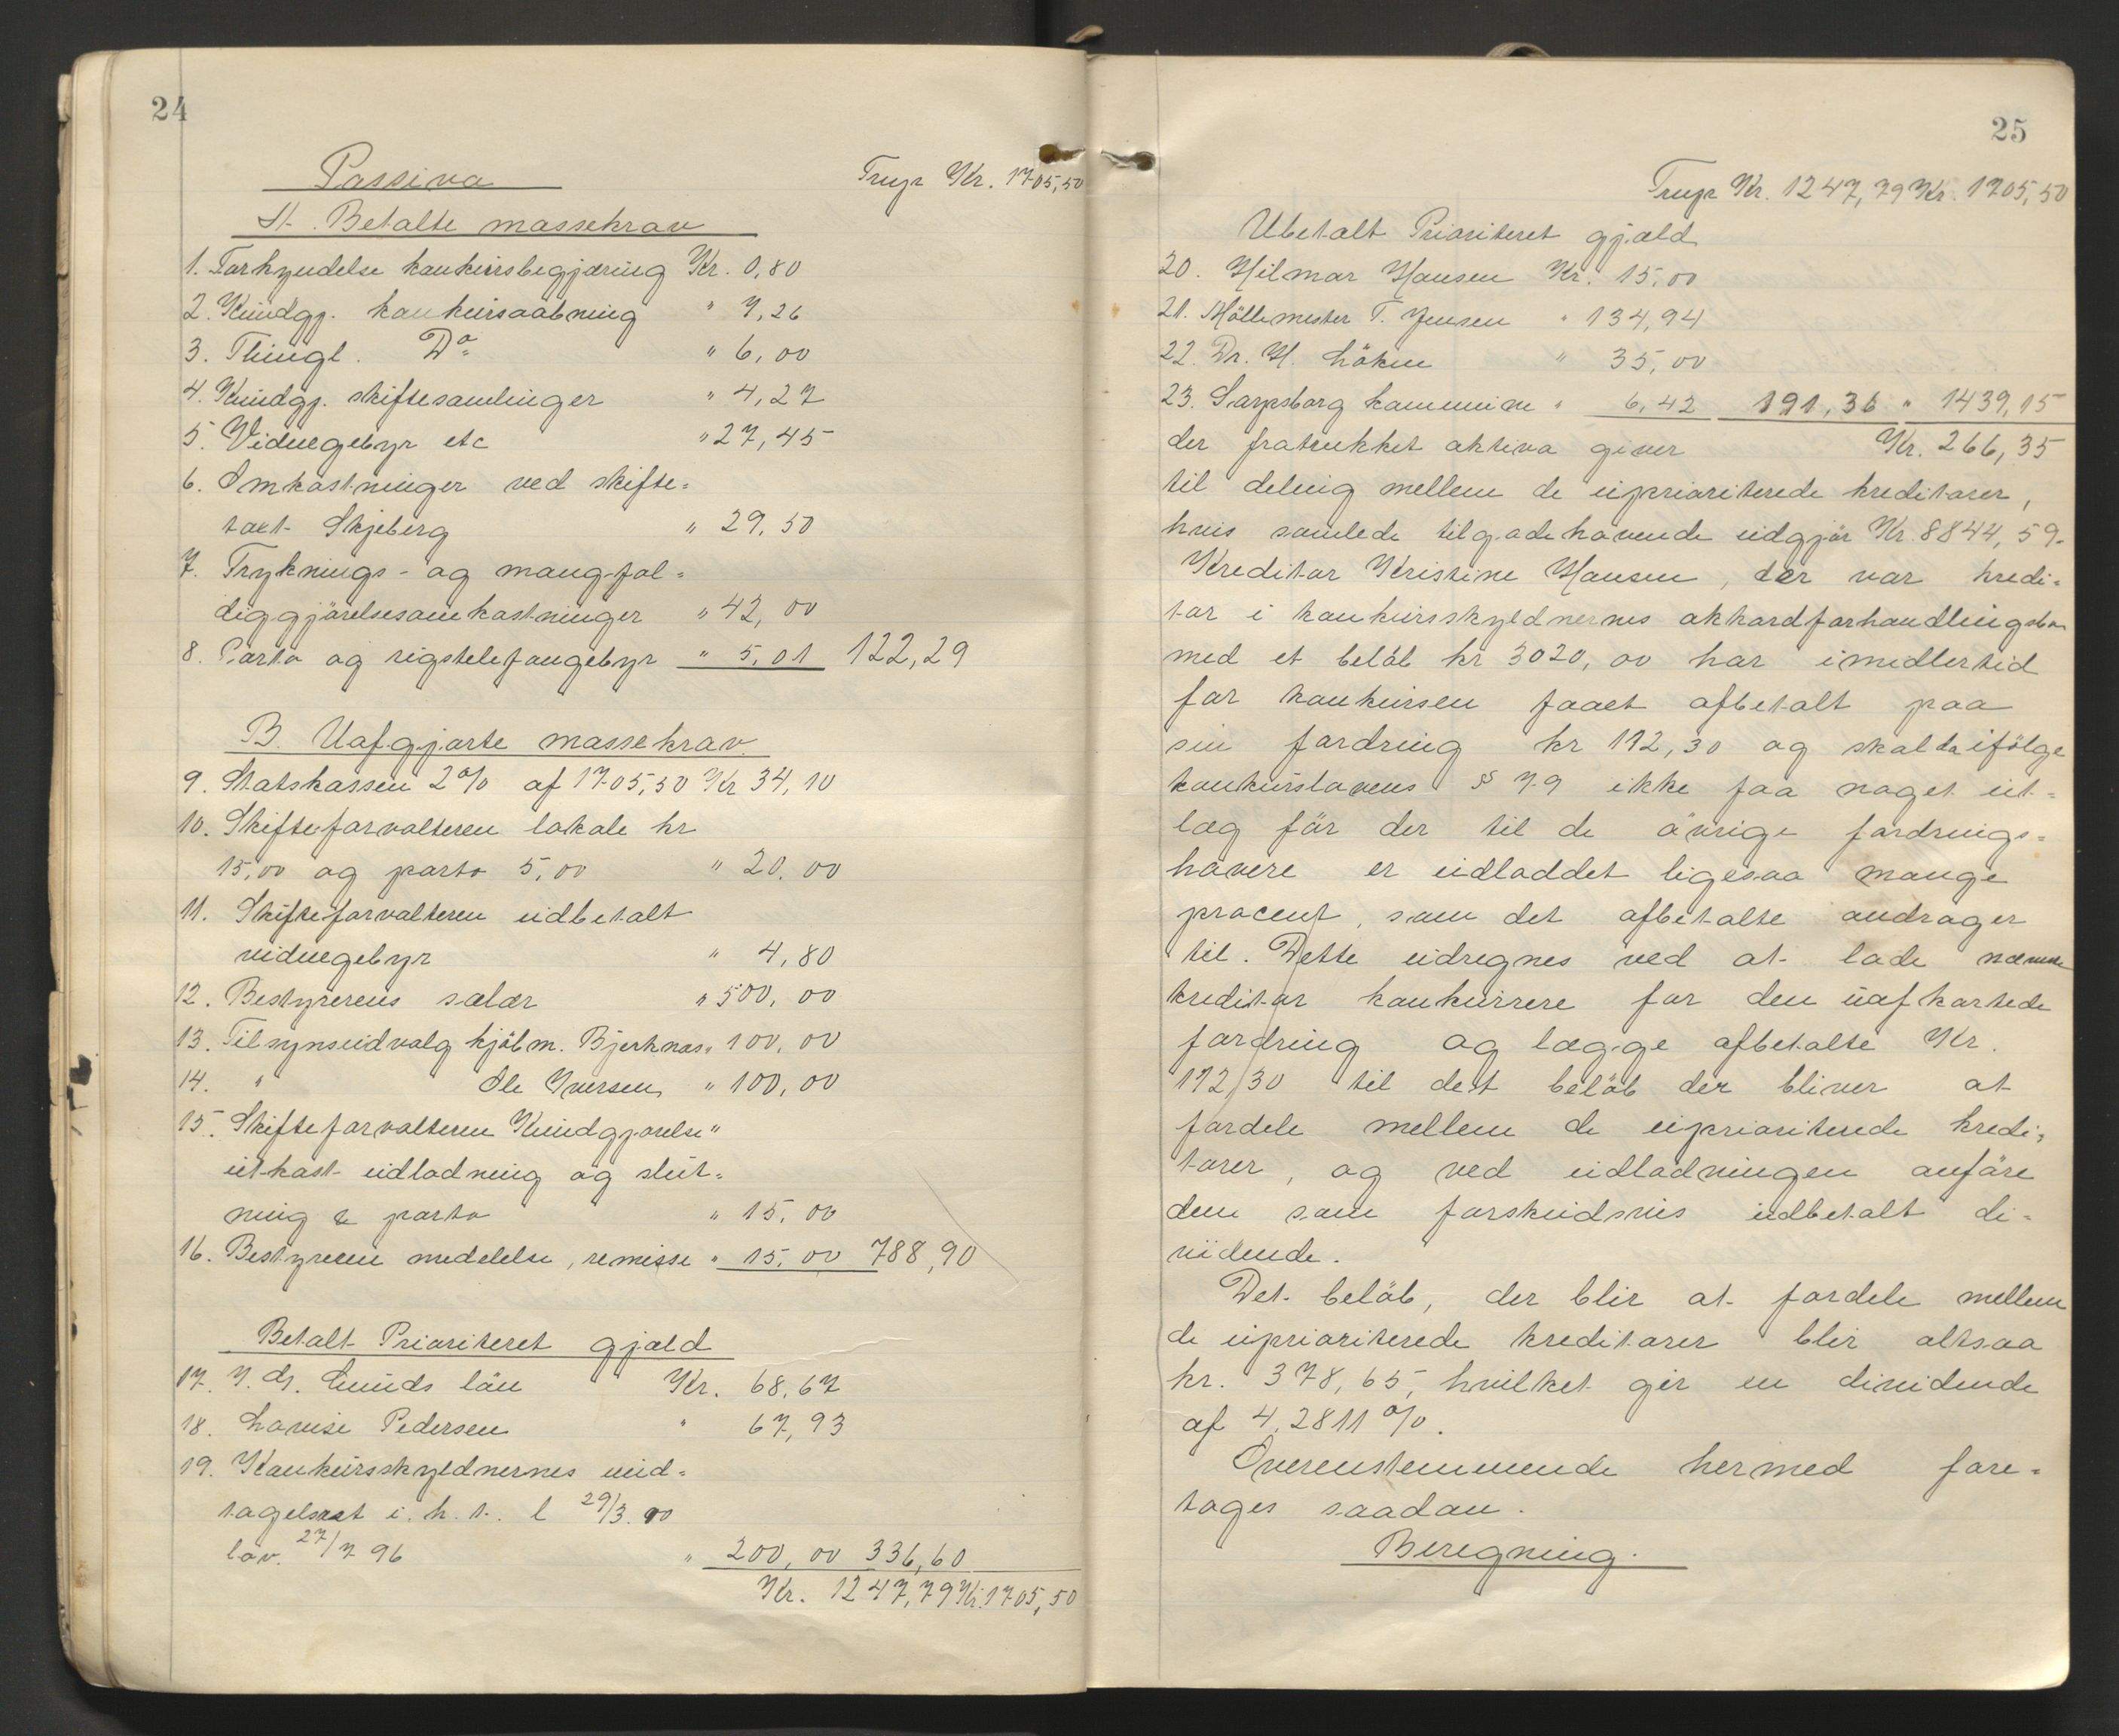 24
Passiva Trnpr Kr. 1705,50
A. Betalte massekrav
1. Forkyndelse konkursbegjæring Kr. 0,80
2. Kundgj. konkursaabning " 7,26
3. Thingl. Do " 6,00
4. Kundgj. skiftesamlinger " 4,27
5. Vidnegebyr etc " 27,45
6. Omkostninger ved skifte-
taxt Skjeberg " 29,50
7. Tryknings- og mangfol-
diggjörelsesomkostninger " 42,00
8. Porto og rigstelefongebyr " 5,01 122,29
B. Uafgjorte massekrav
9. Statskassen 2% af 1705,50 Kr 34,10
10. Skifteforvalteren lokale kr
15,00 og porto 5,00 " 20,00
11. Skifteforvalteren udbetalt
vidnegebyr " 4,80
12. Bestyrerens salær " 500,00
13. Tilsynsudvalg kjöbm. Bjerknæs " 100,00
14. " Ole Iversen " 100,00
15. Skifteforvalteren Kundgjorelse "
utkast udlodning og slut-
ning & porto " 15,00
16. Bestyreren meddelelse, remisse " 15,00 788,90
Betalt Prioriteret gjæld
17. Lunds lön Kr. 68,67
18. Lovise Pedersen " 67,93
19. Konkursskyldnernes und-
tagelsret i. h. t. l 29/3.90
lov. 27/7 96 " 200,00 336,60
Kr. 1247,79 Kr. 1705,50
25
Trnpr Kr. 1247,79 Kr. 1705,50
Ubetalt Prioriteret gjæld
20. Hilmar Hansen Kr. 15,00
21. Möllemester T. Jensen " 134,94
22. Dr. H. Löken " 35,00
23. Sarpsborg kommune " 6,42 191,36 " 1439,15
der fratrukket aktiva giver Kr. 266,35
til deling mellem de uprioriterede kreditorer,
hvis samlede tilgodehavende udgjör Kr. 8844,59.
Kreditor Kristine Hansen, der var kredi-
tor i konkursskyldnernes akkordforhandlingsbo
med et belöb kr 3020,00 har imidlertid
for konkursen faaet afbetalt paa
sin fordring kr 112,30 og skal da ifölge
konkurslovens § 79 ikke faa noget ut-
læg för der til de övrige fordrings-
havere er udloddet ligesaa mange
procent, som det afbetalte andrager
til. Dette udregnes ved at lade nævnte
kreditor konkurrere for den uafkortede
fordring og lægge afbetalte Kr.
112,30 til det belöb der bliver at
fordele mellem de uprioriterede kredi-
torer, og ved udlodningen anföre
dem som forskudsvis udbetalt di-
vidende.
Det belöb, der blir at fordele mellem
de uprioriterede kreditorer blir altsaa
kr. 378,65, hvilket gir en dividende
af 4,2811 %.
Overenstemmende hermed fore-
tages saadan.
Beregning.